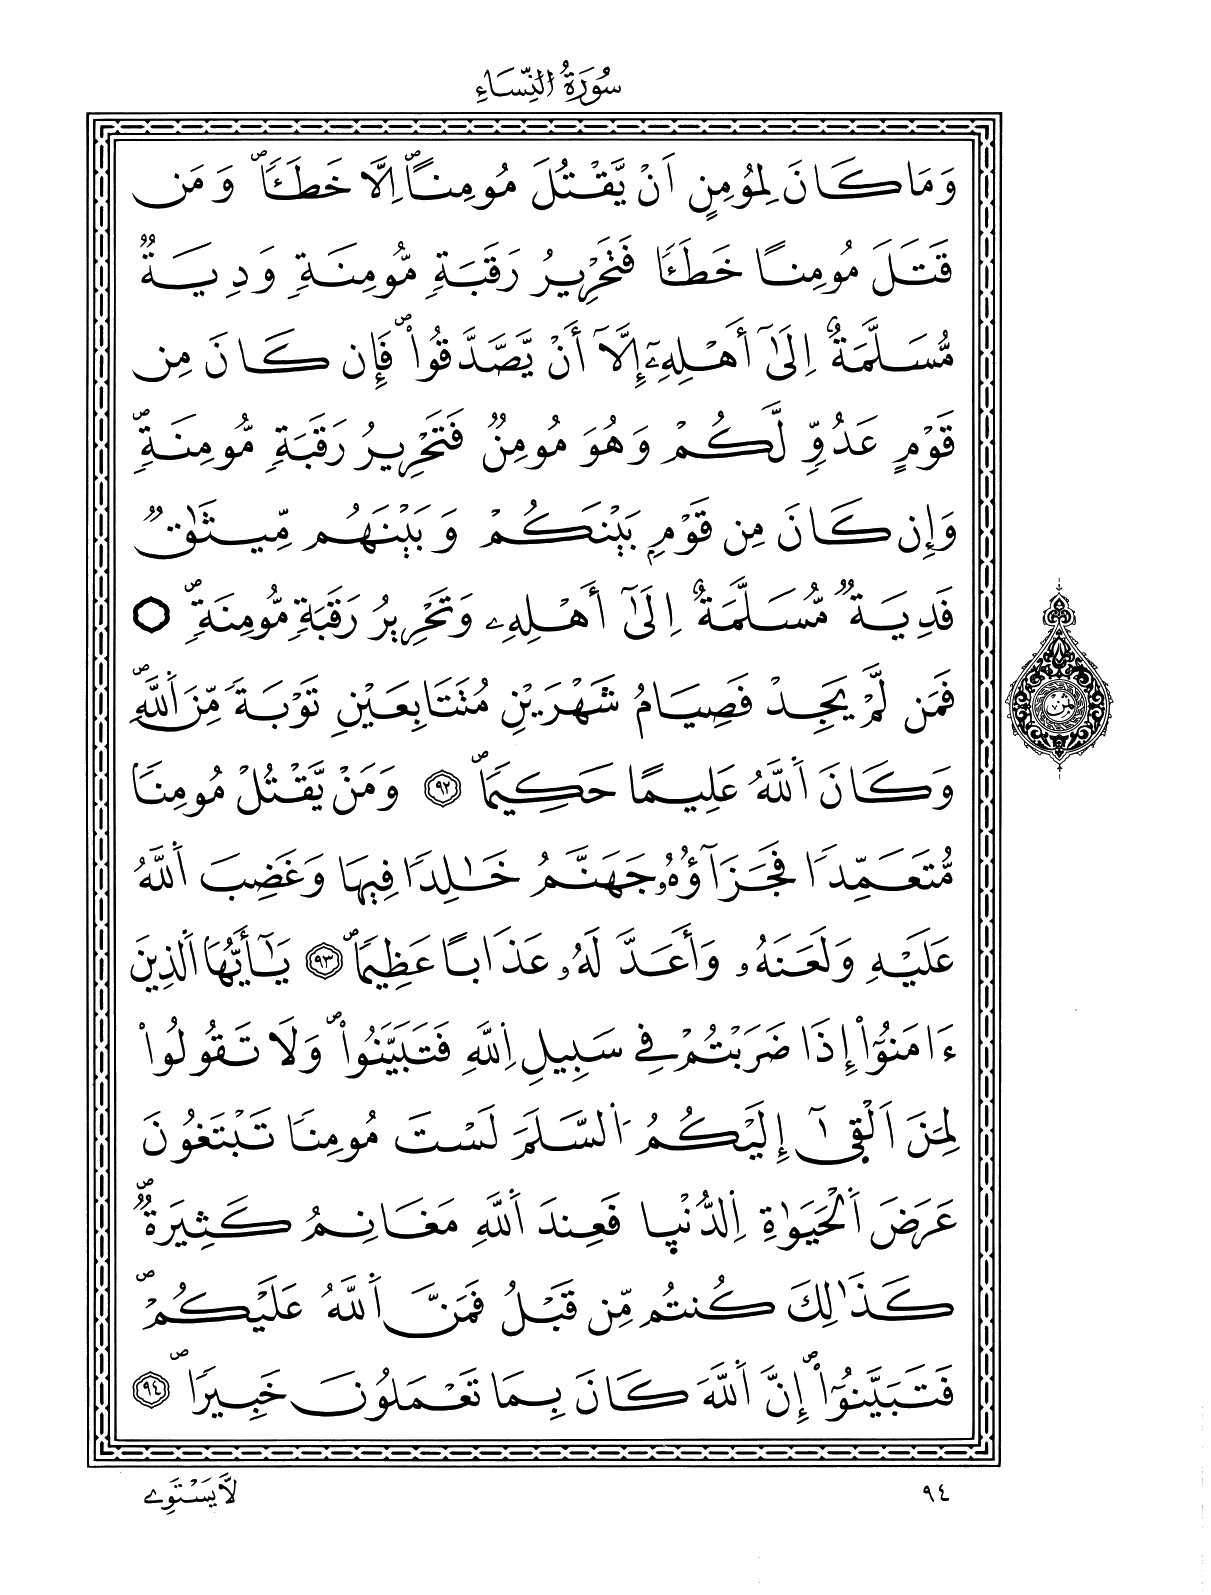 سُورَةُ النِّسَاءِ
وَمَا كَانَ لِمُومِنٍ اَنْ يَّقْتُلَ مُومِناً ۖ اِلَّا خَطَـٔاً ۖ وَمَن
قَتَلَ مُومِناً خَطَـٔاً فَتَحْرِيرُ رَقَبَةٍ مُّومِنَةٍ وَدِيَةٌ
مُّسَلَّمَةٌ اِلَىٰٓ أَهْلِهِۦٓ إِلَّآ أَنْ يَّصَّدَّقُواْ ۖ فَإِن كَانَ مِن
قَوْمٍ عَدُوٍّ لَّكُمْ وَهُوَ مُومِنٌ فَتَحْرِيرُ رَقَبَةٍ مُّومِنَةٍ ۖ
وَإِن كَانَ مِن قَوْمِۢ بَيْنَكُمْ وَبَيْنَهُم مِّيثَٰقٌ
فَدِيَةٌ مُّسَلَّمَةٌ اِلَىٰٓ أَهْلِهِۦ وَتَحْرِيرُ رَقَبَةٍ مُّومِنَةٍ ۖ
فَمَن لَّمْ يَجِدْ فَصِيَامُ شَهْرَيْنِ مُتَتَابِعَيْنِ تَوْبَةً مِّنَ اَللَّهِ ۖ
وَكَانَ اَللَّهُ عَلِيماً حَكِيماً ۖ ٩٢ وَمَنْ يَّقْتُلْ مُومِناً
مُّتَعَمِّداً فَجَزَآؤُهُۥ جَهَنَّمُ خَٰلِداً فِيهَا وَغَضِبَ اَللَّهُ
عَلَيْهِ وَلَعَنَهُۥ وَأَعَدَّ لَهُۥ عَذَاباً عَظِيماً ۖ ٩٣ يَٰٓأَيُّهَا اَلذِينَ
ءَامَنُوٓاْ إِذَا ضَرَبْتُمْ فِي سَبِيلِ اِللَّهِ فَتَبَيَّنُواْ ۖ وَلَا تَقُولُواْ
لِمَنَ اَلْقَىٰٓ إِلَيْكُمُ اُلسَّلَمَ لَسْتَ مُومِناً تَبْتَغُونَ
عَرَضَ اَلْحَيَوٰةِ اِلدُّنْيِا فَعِندَ اَللَّهِ مَغَانِمُ كَثِيرَةٌ ۖ
كَذَٰلِكَ كُنتُم مِّن قَبْلُ فَمَنَّ اَللَّهُ عَلَيْكُمْ ۖ
فَتَبَيَّنُوٓاْ ۖ إِنَّ اَللَّهَ كَانَ بِمَا تَعْمَلُونَ خَبِيراً ۖ ٩٤
٩٤
لَّا يَسْتَوِے